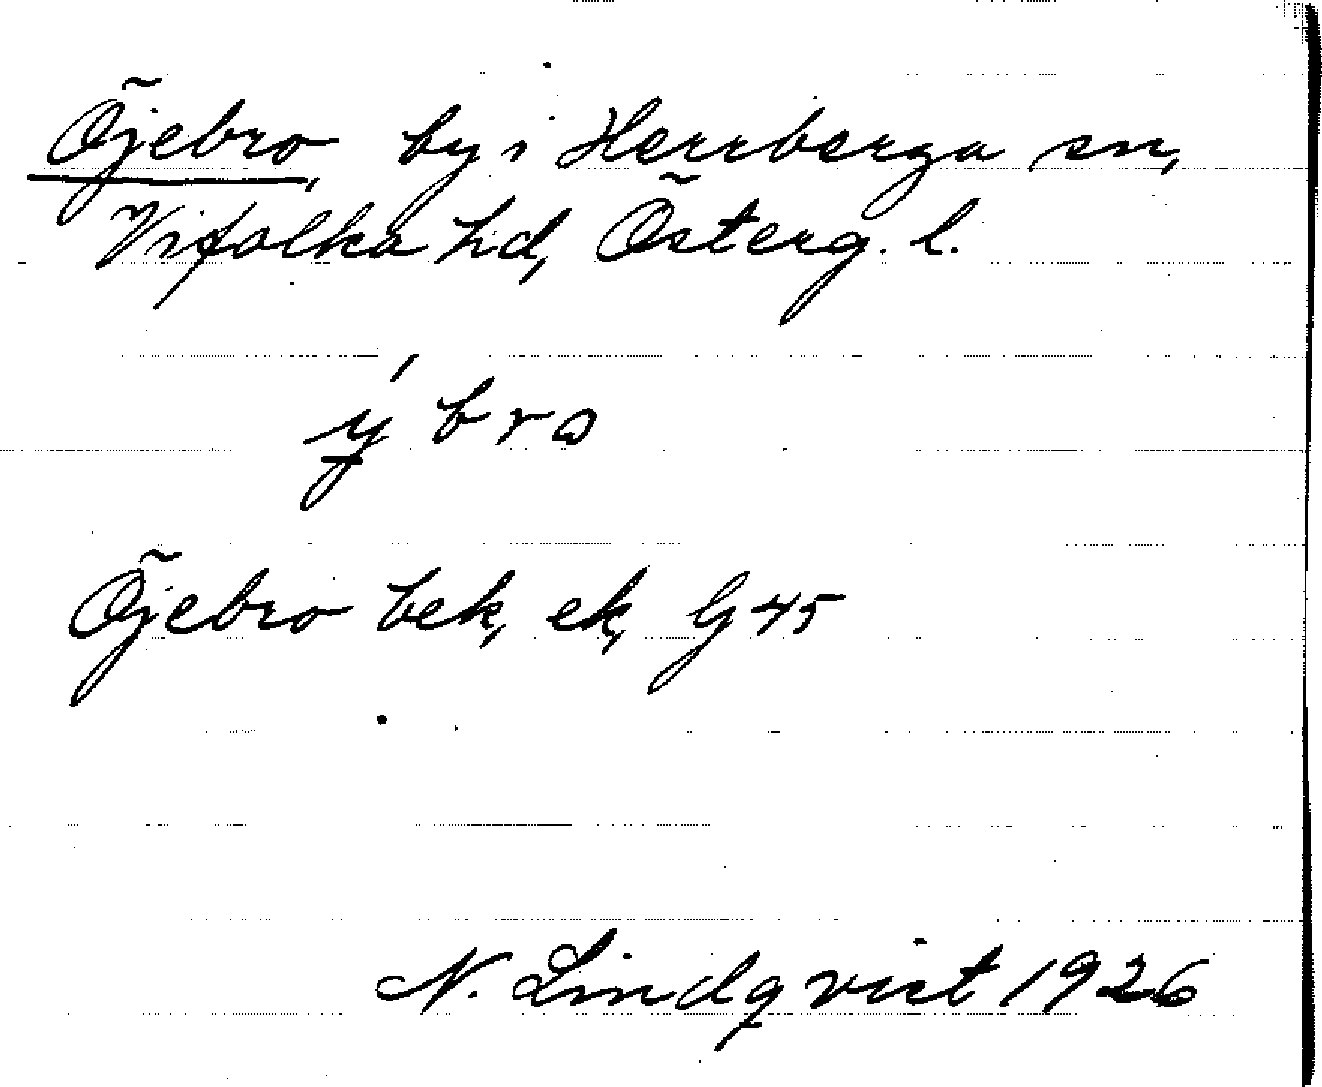 Öjebro, by i Herrberga sn,
Vifolka hd, Österg. l.
ý bro
Öjebro bek, ek, G 45
N. Lindqvist 1926